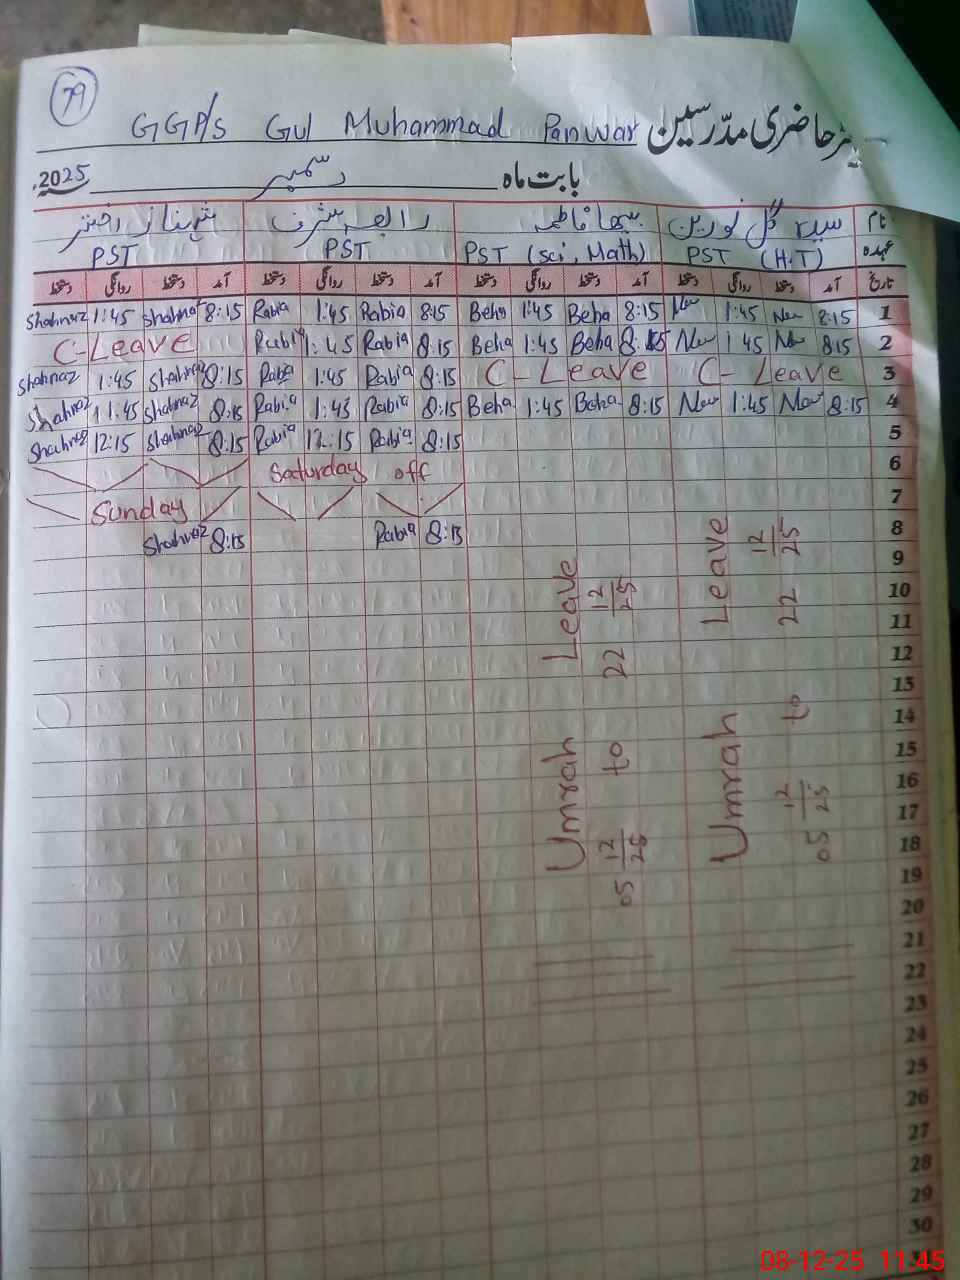 79
GGP/S Gul Muhammad Panwar حاضری مدرسین
بابت ماہ دسمبر 2025
نام سیدہ گل نورین فاطمہ رابعہ شرف شہناز اختر
عہدہ PST (H.T) PST (Sci, Math) PST PST
تاریخ آمد دستخط روانگی دستخط آمد دستخط روانگی دستخط آمد دستخط روانگی دستخط آمد دستخط روانگی دستخط
Shahnaz 1:45 Shahnaz 8:15 Rabia 1:45 Rabia 8:15 Beha 1:45 Beha 8:15 Now 1:45 Now 8:15 1
C-Leave Rabia 1:45 Rabia 8:15 Beha 1:45 Beha 8:15 Now 1 45 Now 8:15 2
Shahnaz 1:45 Shahnaz 8:15 Rabia 1:45 Rabia 8:15 C-Leave C-Leave 3
Shahnaz 1:45 Shahnaz 8:15 Rabia 1:45 Rabia 8:15 Beha 1:45 Beha 8:15 Now 1:45 Now 8:15 4
Shahnaz 12:15 Shahnaz 8:15 Rabia 12:15 Rabia 8:15 5
Saturday off 6
Sunday 7
Shahnaz 8:15 Rabia 8:15 8
9
10
11
12
13
14
15
16
17
18
19
20
21
22
23
24
25
26
27
28
29
30
Umrah Leave
05 12/25 to 22 12/25
Umrah Leave
05 12/25 to 22 12/25
08-12-25 11:45